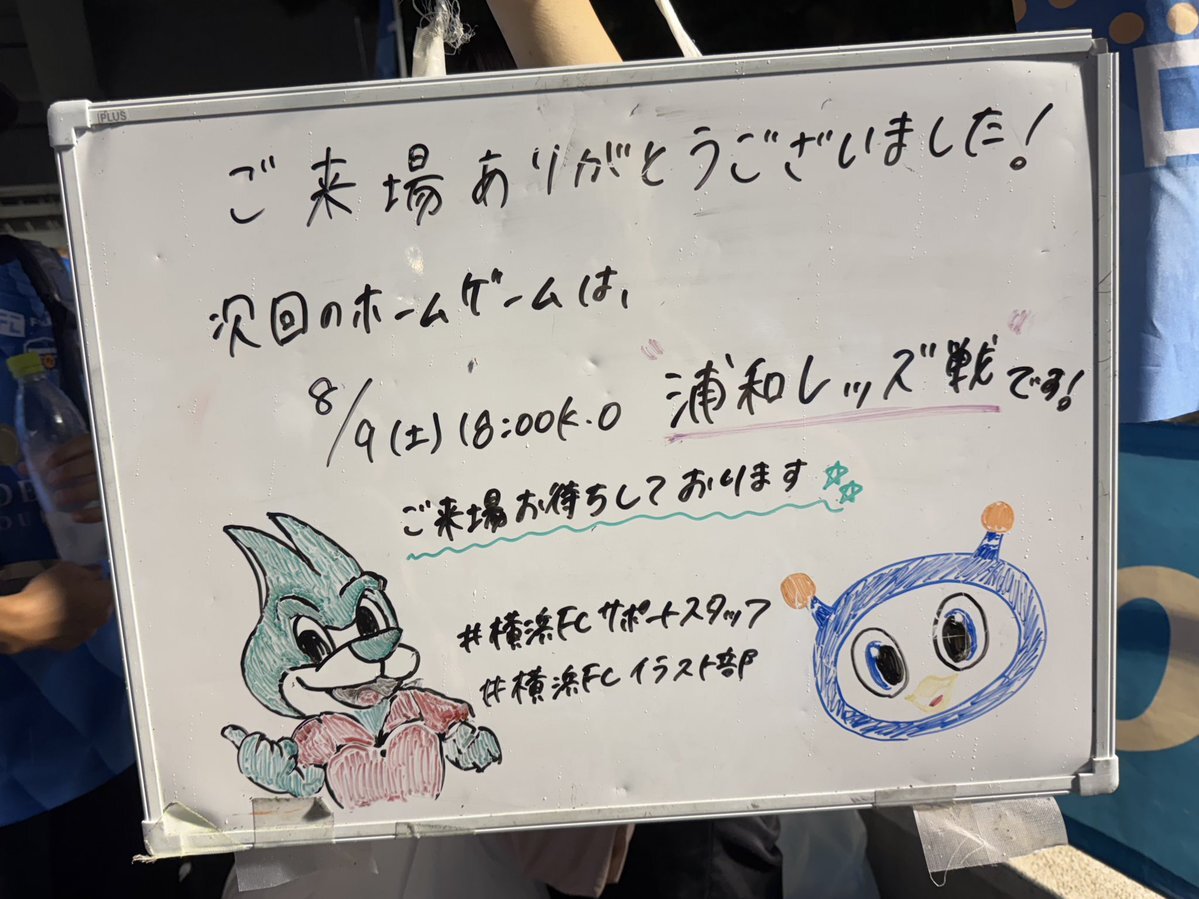 PLUS
ご来場ありがとうございました!
次回のホームゲームは、
8/9(土)18:00K.O 浦和レッズ戦です!
ご来場お待ちしております☆☆
#横浜FCサポートスタッフ
#横浜FCイラスト部